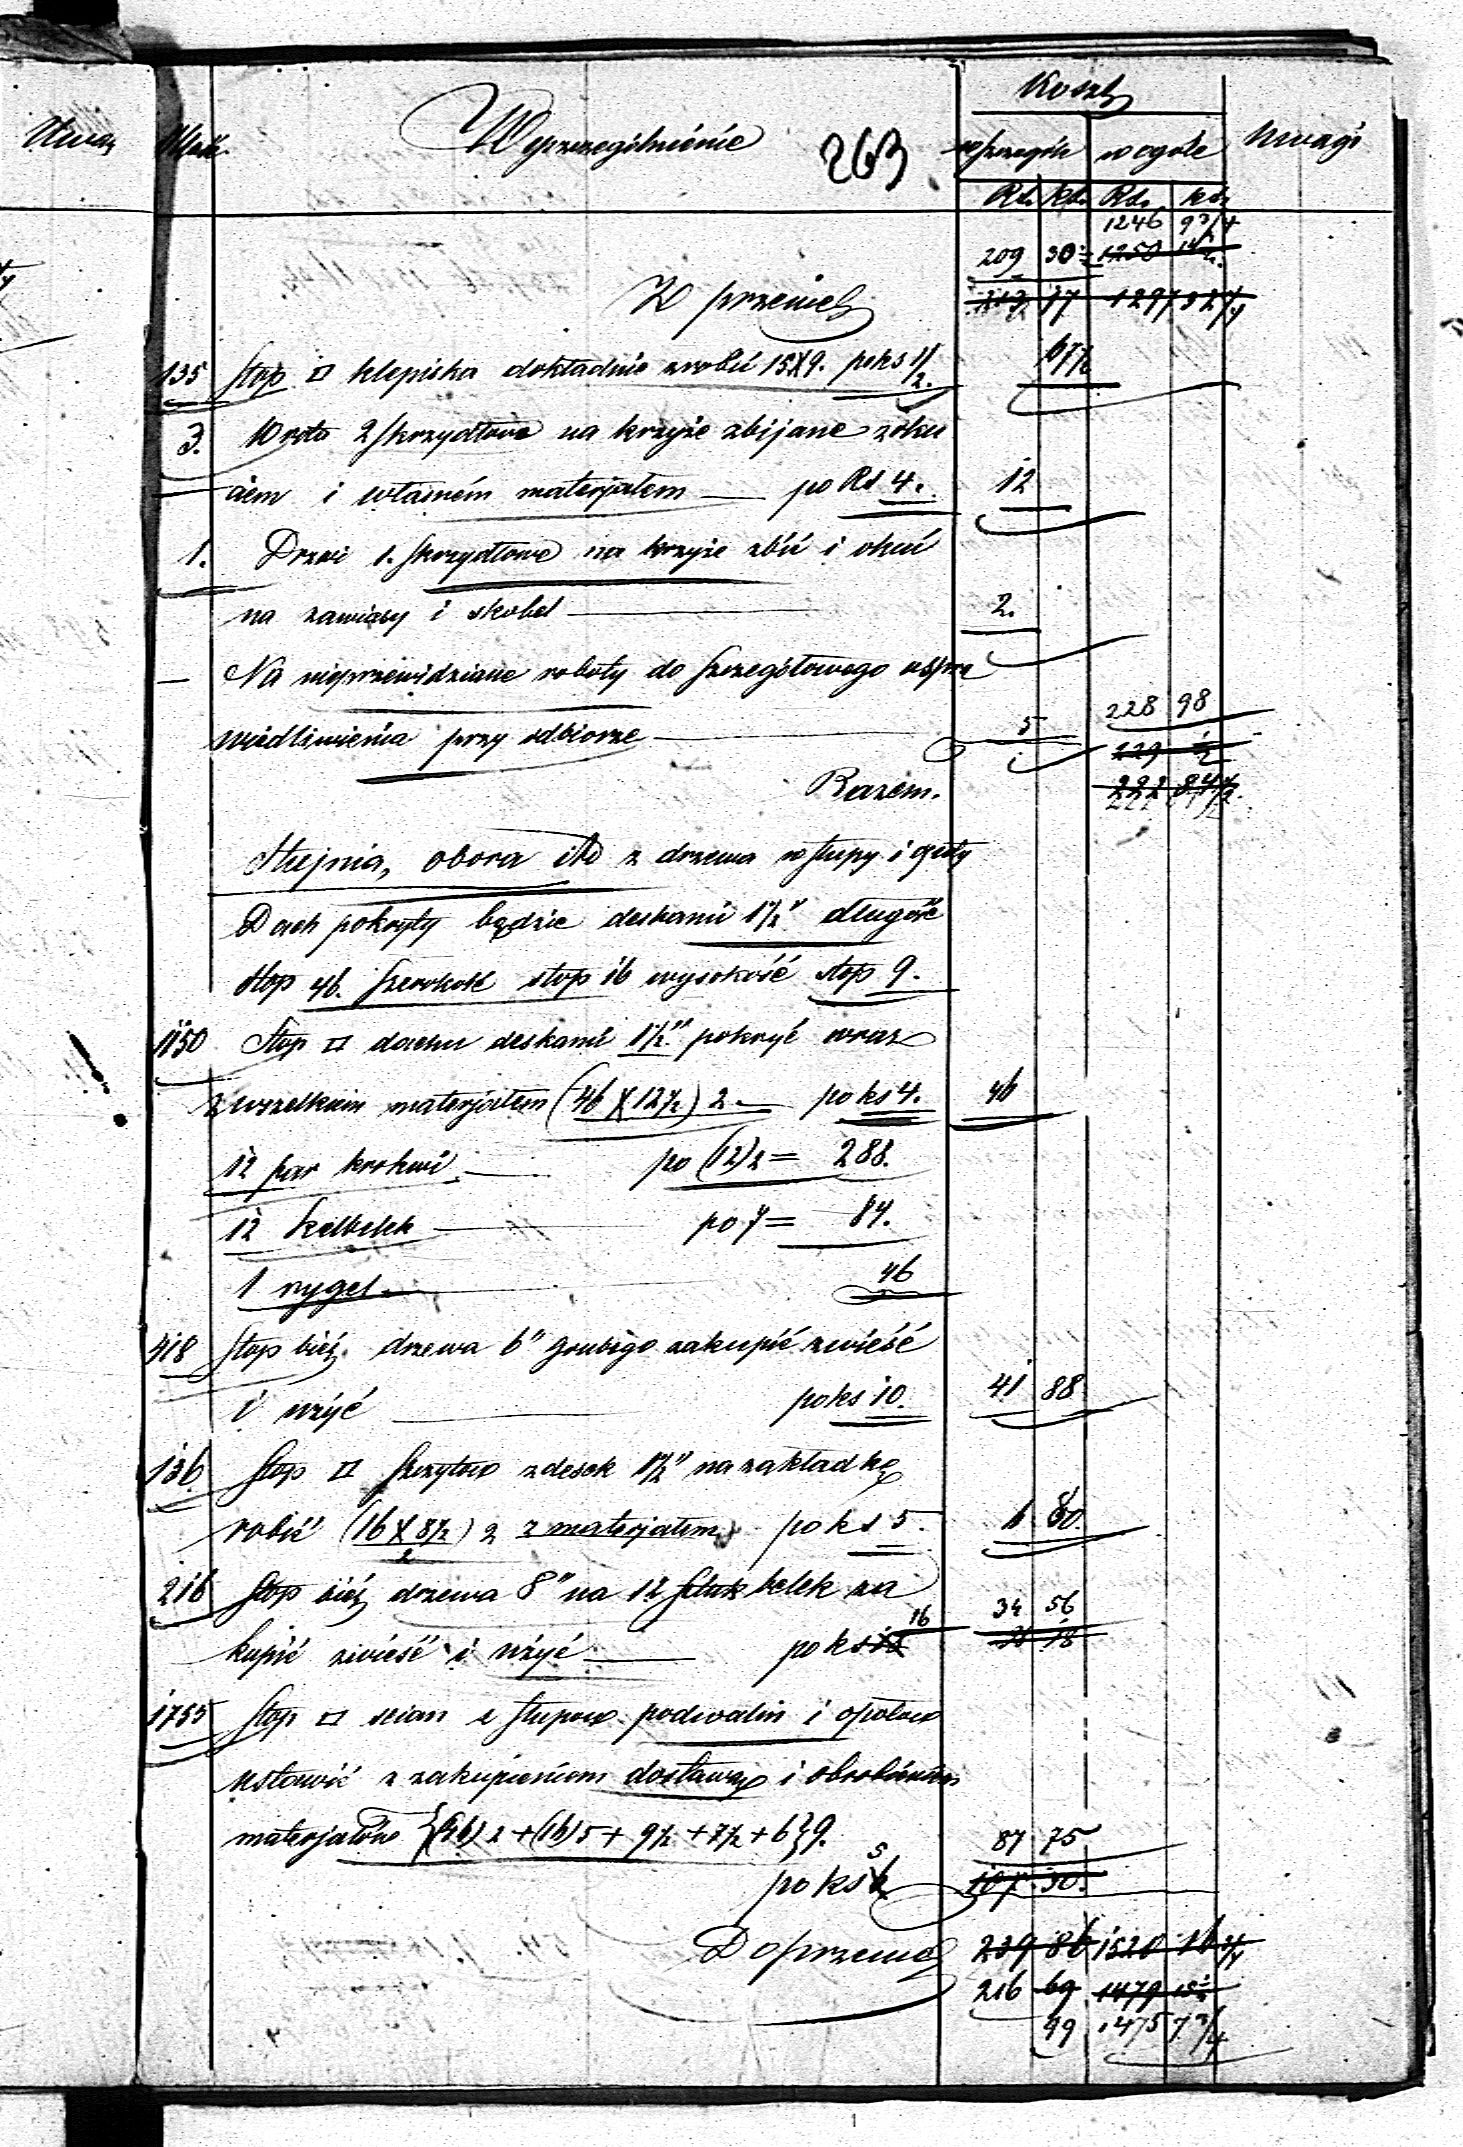 Uwag Ilość. Wyszczególnienie 263 Koszt Uwagi
wszczególe w ogóle
Rs. ks. Rs. ks.
1246 9 3/4
209 30 1/2 1250 14 1/2
Z przenies 213 17 1297 52 1/4
135 Stop □ klepiska dokładnie zrobić 15X9. po ks 1/2. 67 1/2
3. Wrota 2 skrzydłowe na krzyże zbijane z oku
ciem i własnem materjałem po Rs 4. 12
1. Drzwi 1. skrzydłowe na krzyże zbić i okuć
na zawiasy i skobel 2.
— Na nieprzewidziane roboty do szczegółowego uspra
wiedliwienia przy odbiorze 5 228 98
229 1/2
Razem. 222 84 1/2
Stajnia, obora itd z drzewa w słupy i
Dach pokryty będzie deskami 1 1/2" długość
stop 46. szerokość stop 16 wysokość stop 9.
1150 Stop □ dachu deskami 1 1/2" pokryć wraz
z wszelkim materjałem (46 X 12 1/2) 2. po ks 4. 46
12 par krokwi po (12) 2 = 288.
12 belek po 7 = 84.
1 rygel 46
418 Stop bież. drzewa 6" grubego zakupić zwieść
i użyć po ks 10. 41 88
136 Stop □ szczytów z desek 1 1/2" na zakładkę
robić (16 X 8 1/2) 2 z materjałem po ks 5. 6 80.
2
216 Stop bież drzewa 8" na 12 sztuk belek za
16 34 56
kupić zwieść i użyć po ks 18
1755 Stop □ ścian z słupów podwalin i opołów
ustawić z zakupieniem dostawą i obrobieniem
materjałów {(46) 2 + (16) 5 + 9 1/2 + 7 1/2 + 6} 9. 87 75
5
po ks 6 107. 30.
Do przenies 239 86 1520 16 3/4
216 69 1479 15 1/2
99 1475 7 3/4